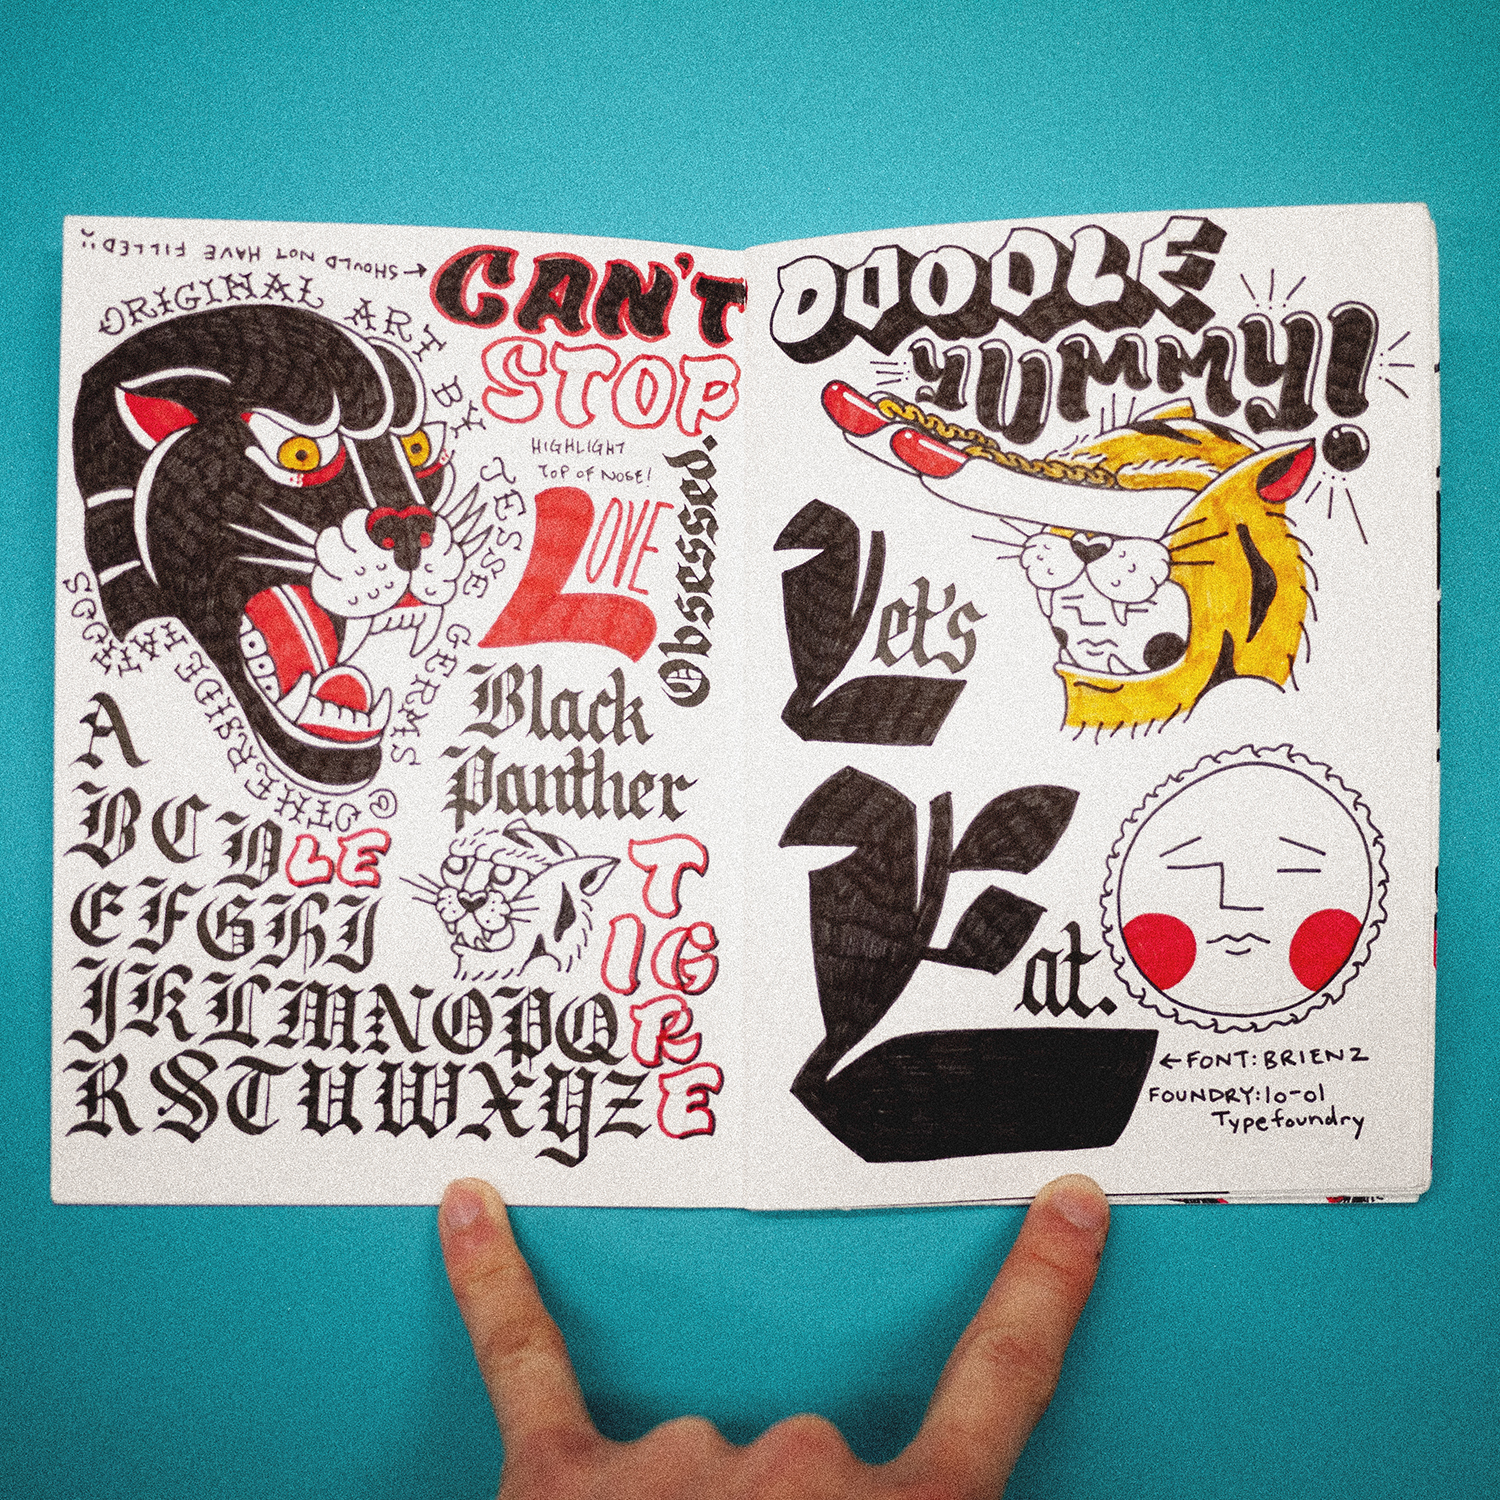 ←SHOULD NOT HAVE FILLED!!
CAN'T
STOP
ORIGINAL ART BY JESSE GERMS
HIGHLIGHT
TOP OF NOSE!
LOVE
Obsessed.
Black
Panther
A
B C D LE
E F G H I
J K L M N O P Q
R S T U W X Y Z
TIGRE
DOODLE
YUMMY!
Let's
Eat.
←FONT: BRIENZ
FOUNDRY: lo-ol
Typefoundry